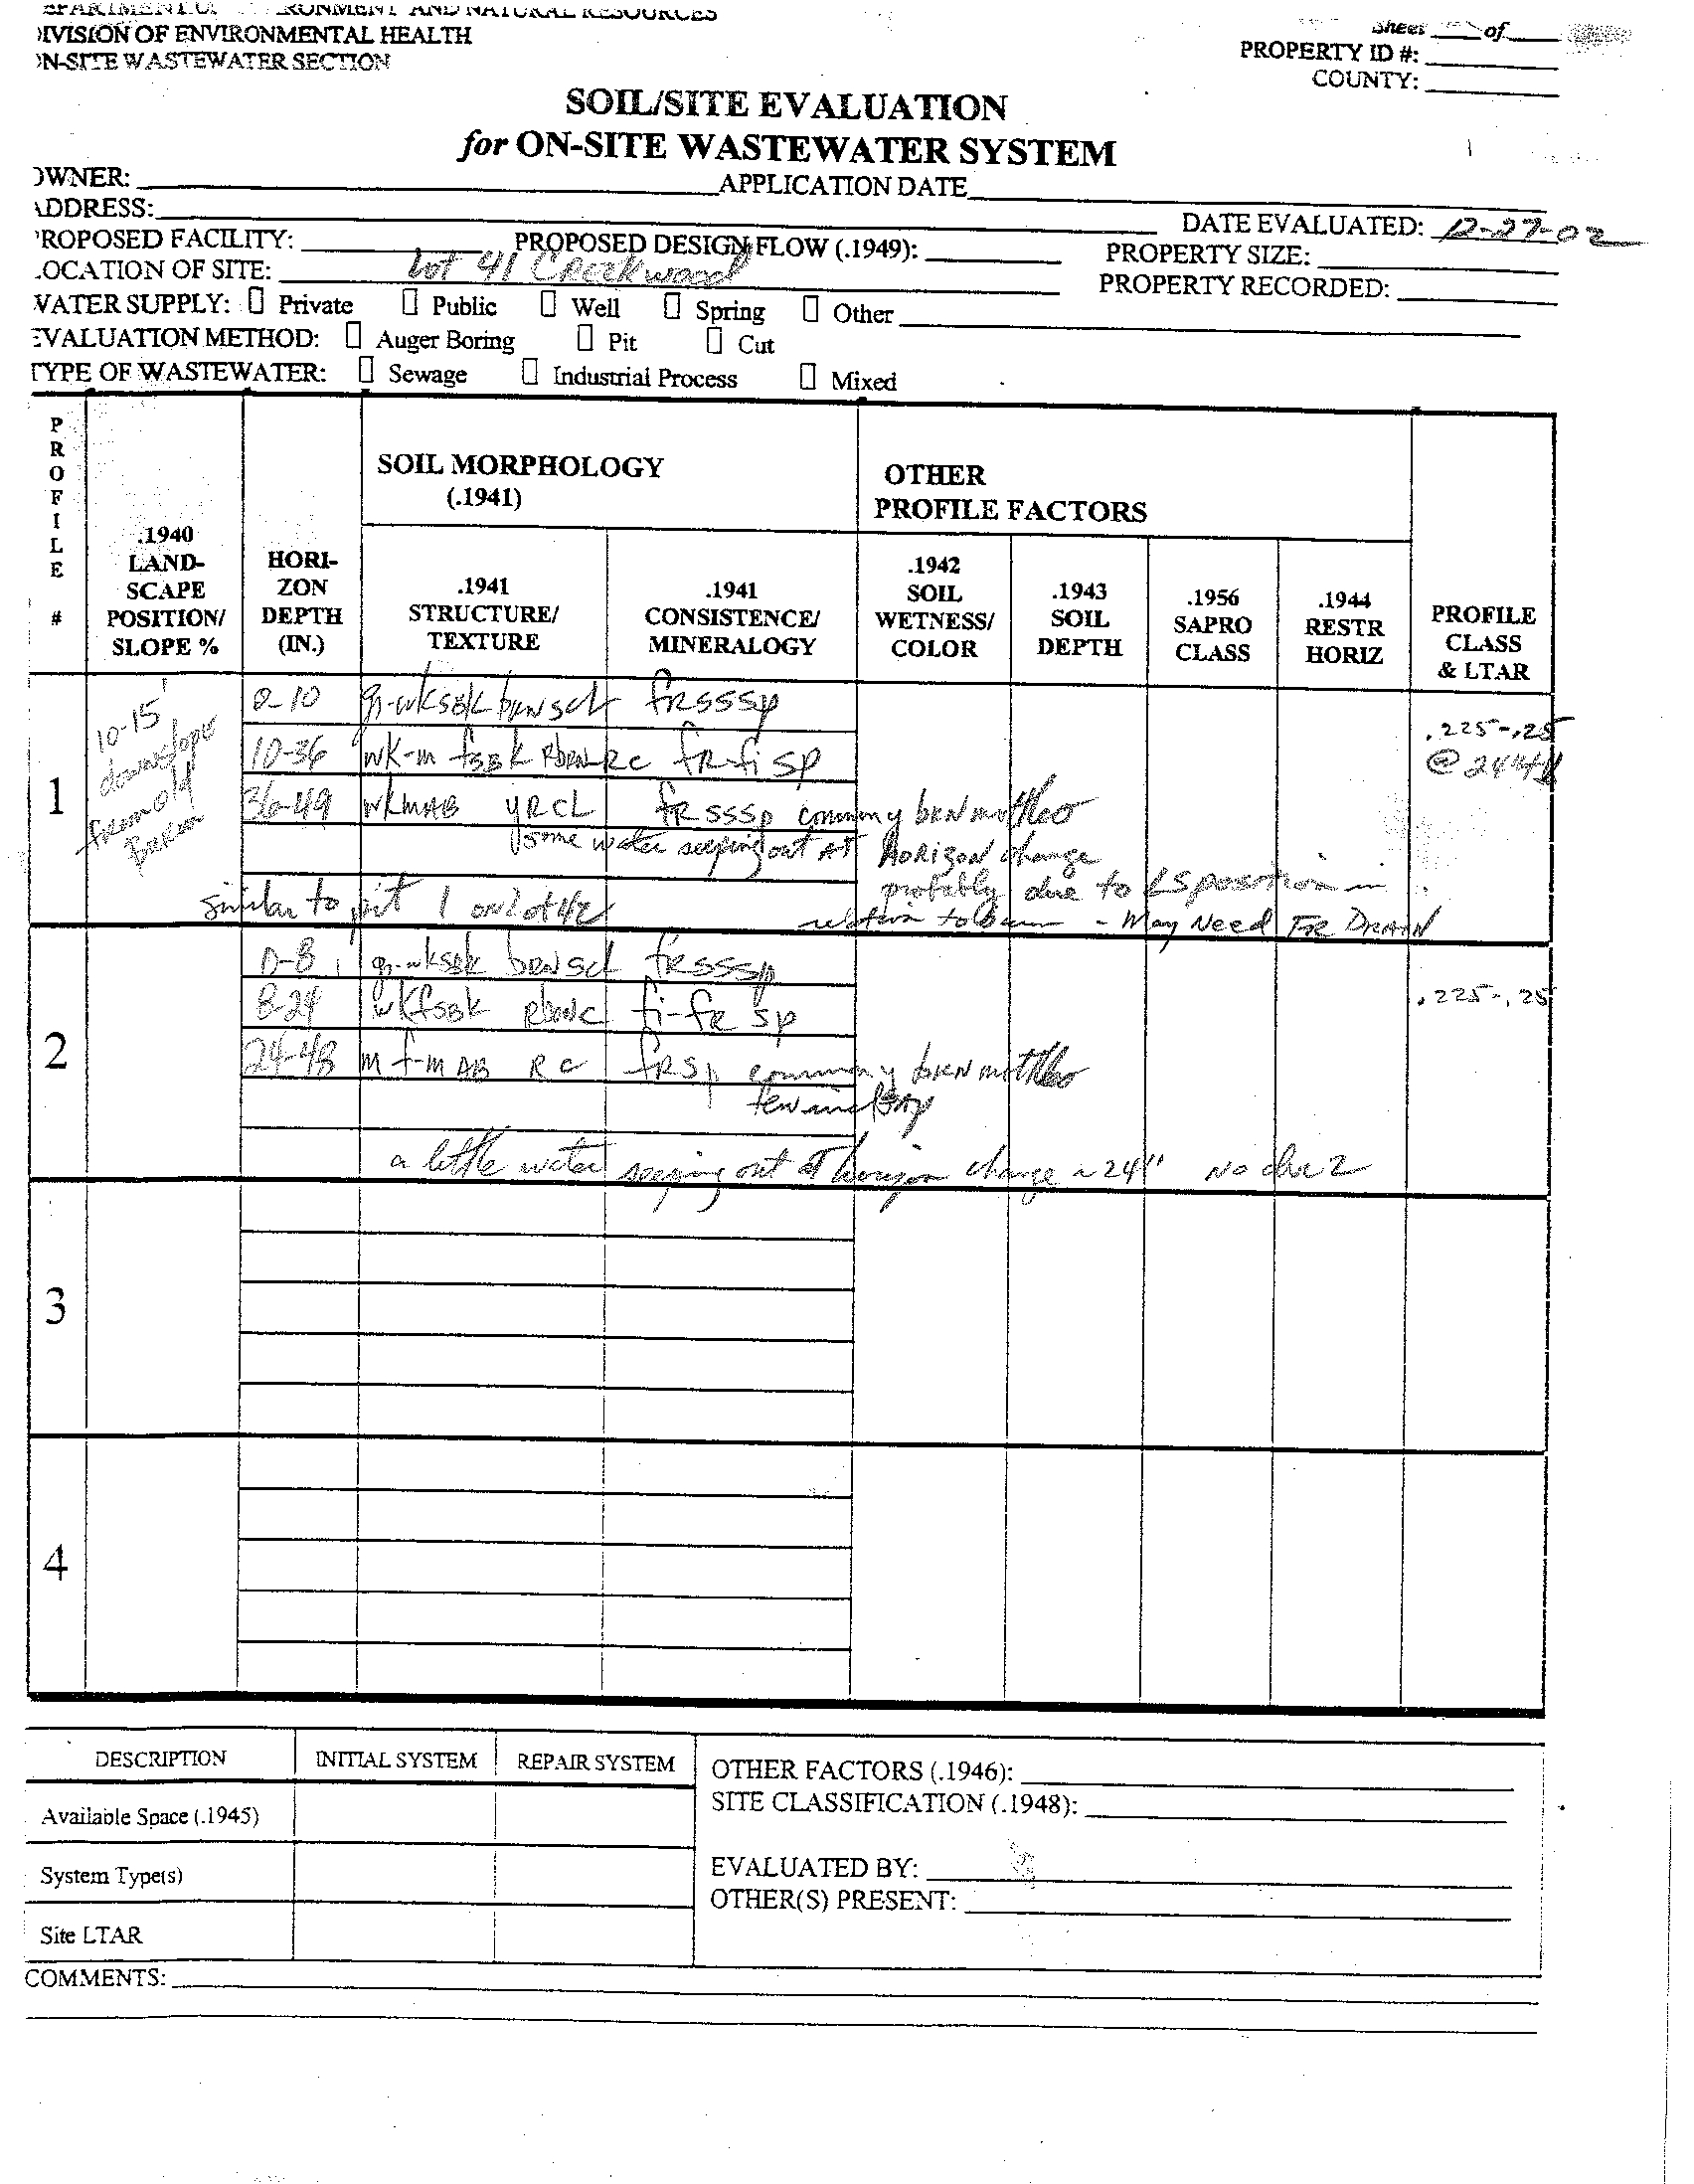 AND NATURAL RESOURCES
IVISION OF ENVIRONMENTAL HEALTH
N-SITE WASTEWATER SECTION
Sheet ___ of ___
PROPERTY ID #:
COUNTY:
SOIL/SITE EVALUATION
for ON-SITE WASTEWATER SYSTEM
OWNER: APPLICATION DATE
ADDRESS: DATE EVALUATED: 12-27-02
PROPOSED FACILITY: PROPOSED DESIGN FLOW (.1949): PROPERTY SIZE:
LOCATION OF SITE: Lot 41 Creekwood PROPERTY RECORDED:
WATER SUPPLY: Private Public Well Spring Other
EVALUATION METHOD: Auger Boring Pit Cut
TYPE OF WASTEWATER: Sewage Industrial Process Mixed
PROFILE #
.1940 LAND-SCAPE POSITION/ SLOPE %
HORI-ZON DEPTH (IN.)
SOIL MORPHOLOGY (.1941)
.1941 STRUCTURE/ TEXTURE
.1941 CONSISTENCE/ MINERALOGY
OTHER PROFILE FACTORS
.1942 SOIL WETNESS/ COLOR
.1943 SOIL DEPTH
.1956 SAPRO CLASS
.1944 RESTR HORIZ
PROFILE CLASS & LTAR
1
10-15
downslope
from old
0-10 gr-wksbk brn scl frsssp
10-36 wk-m fsbk Rbrn RC fr-fi sp
36-49 wkmAB yRCL fr sssp common y brn mottles
some water seeping out at Horizon change
probably due to LS position in
similar to pit 1 on Lot 42
relation to - May Need FR DRAIN
.225-.25
@ 24"
2
0-8 gr-wksbk brn scl frsssp
8-24 wkfsbk Rbrnc fi-fr sp
24-48 m f-m AB RC frsp common y brn mottles
few
a little water seeping out at horizon change ~24" No chr 2
.225-.25
3
4
DESCRIPTION INITIAL SYSTEM REPAIR SYSTEM
Available Space (.1945)
System Type(s)
Site LTAR
OTHER FACTORS (.1946):
SITE CLASSIFICATION (.1948):
EVALUATED BY:
OTHER(S) PRESENT:
COMMENTS: